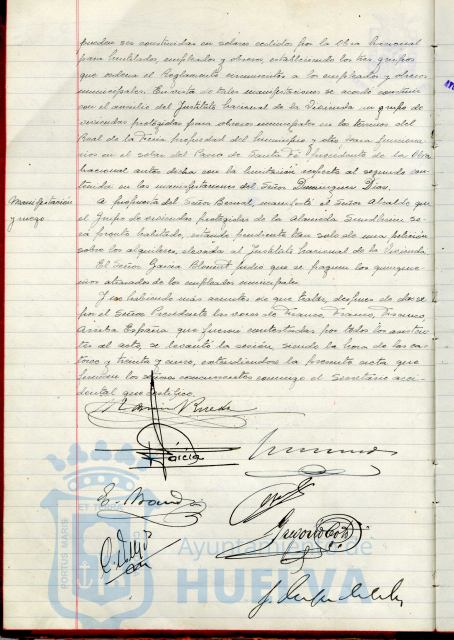 puedan ser construidas en solares cedidos por la Obra Nacional
para Mutilados, empleados y obreros, estableciendo los tres grupos
que ordena el Reglamento concernientes a los empleados y obreros
municipales. En vista de tales manifestaciones se acordó construir
con el auxilio del Instituto Nacional de la Vivienda un grupo de
viviendas protegidas para obreros municipales en los terrenos del
Real de la Feria propiedad del Municipio y otro para funciona-
rios en el solar del Paseo de Santa Fé procedente de la Obra
Nacional antes dicha con la limitación respecto al segundo con-
tenida en las manifestaciones del Señor Dominguez Diaz.
Manifestación
y ruego
A propuesta del Señor Bernal, manifestó el Señor Alcalde que
el Grupo de viviendas protegidas de la Alameda Sundheim se-
rá pronto habitado, estando pendiente tan solo de una petición
sobre los alquileres, elevada al Instituto Nacional de la Vivienda.
El Señor Garcia pidio que se paguen los quinque-
nios atrasados de los empleados municipales.
Y no habiendo más asuntos de que tratar, despues de darse
por el Señor Presidente las voces de Franco, Franco, Franco,
Arriba España que fueron contestadas por todos los asisten-
tes al acto, se levantó la sesión siendo la hora de las ca-
torce y treinta y cinco, extendiendose la presente acta que
firman los señores concurrentes conmigo el Secretario acci-
dental que certifico.
Garcia
PORTUS MARIS
ET TERRÆ
Ayuntamiento de
HUELVA